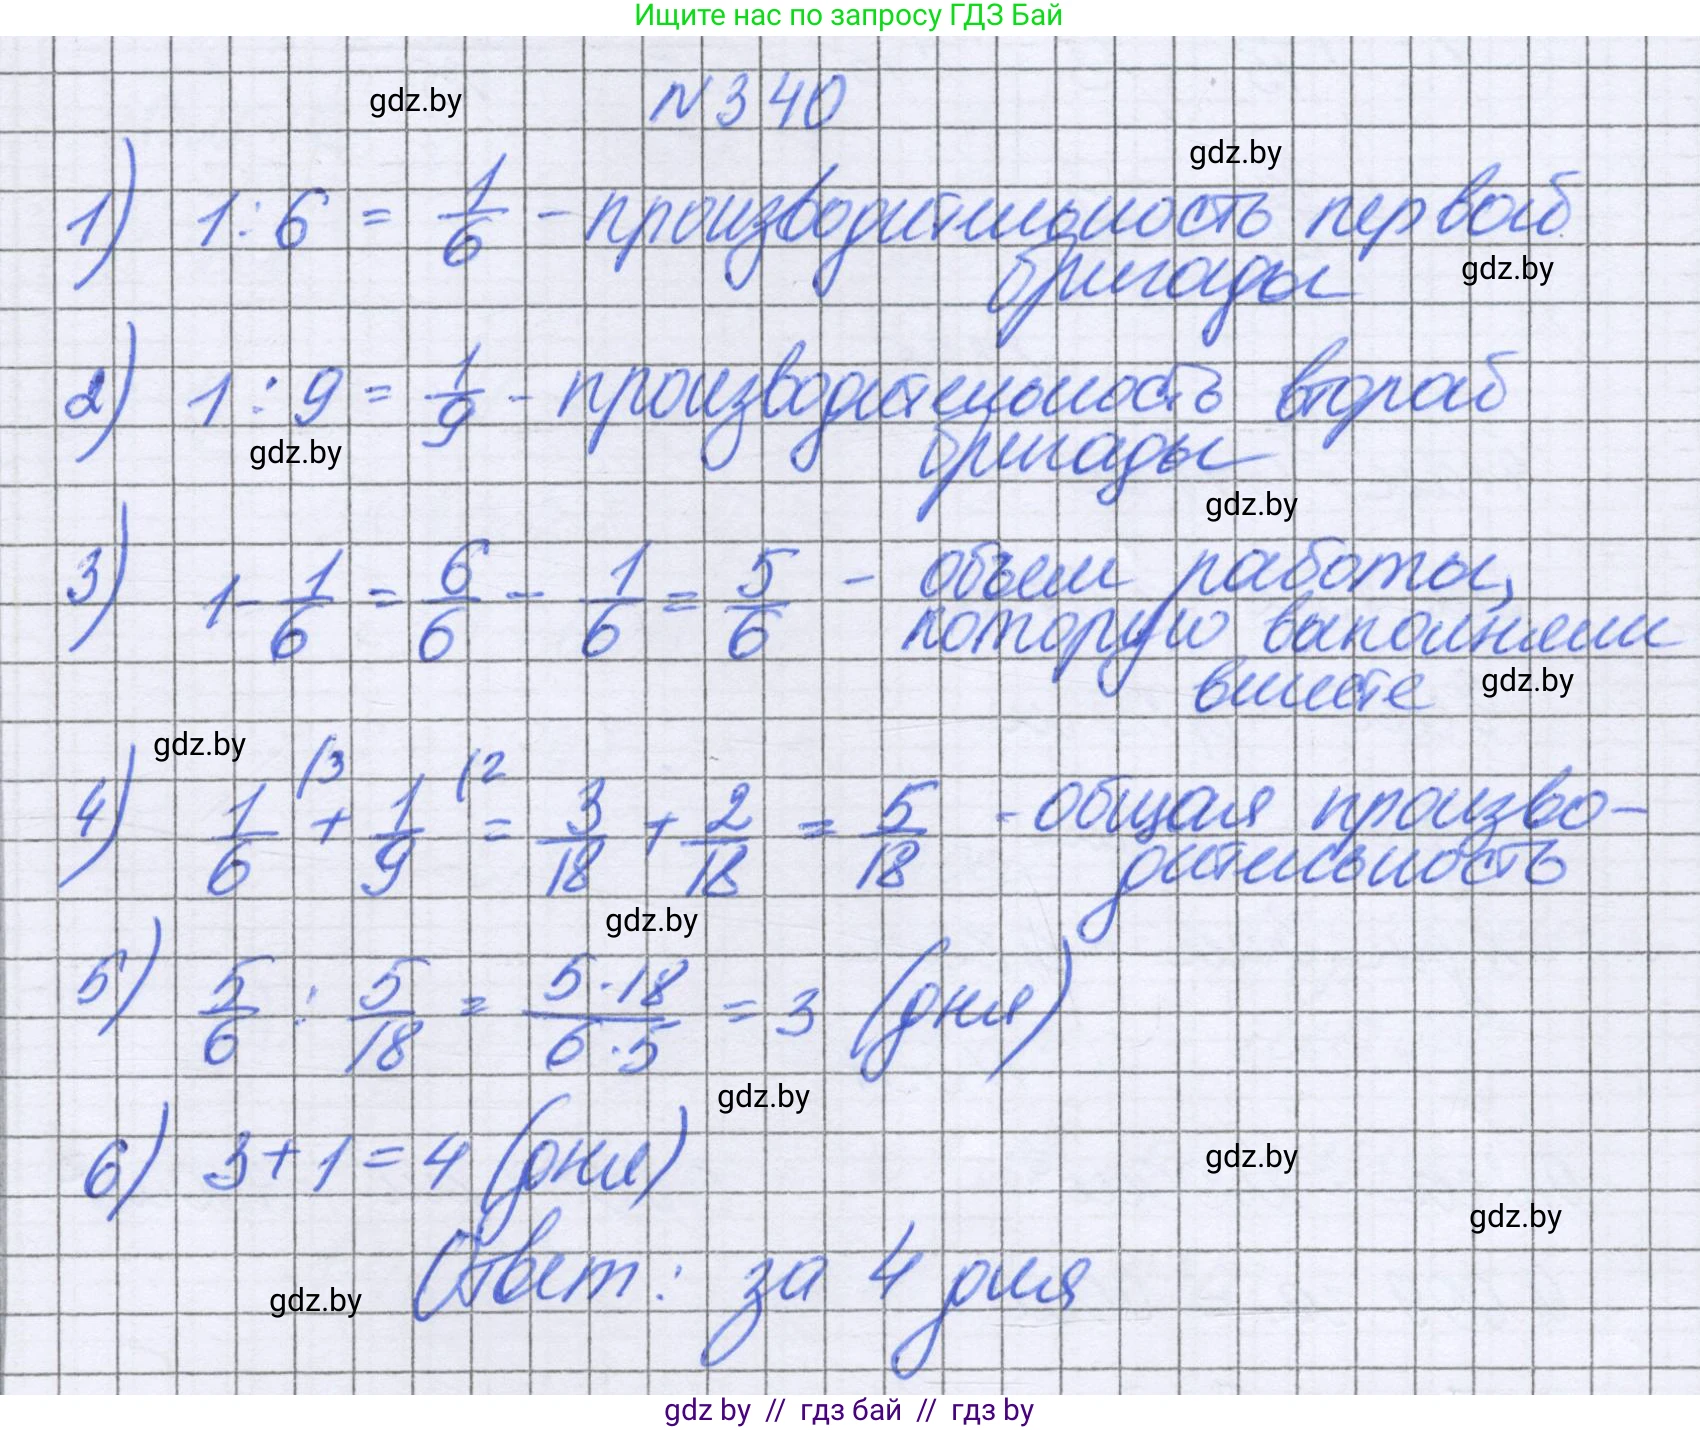 Ищите нас по запросу ГДЗ Бай
gdz.by
N 340
gdz.by
1) 1 : 6 = 1/6 - производительность первой
бригады
gdz.by
2) 1 : 9 = 1/9 - производительность второй
gdz.by
бригады
gdz.by
3) 1 - 1/6 = 6/6 - 1/6 = 5/6 - объем работы,
которую выполняли
вместе
gdz.by
gdz.by
4) 1/6 (3 + 1/9 (2 = 3/18 + 2/18 = 5/18 - общая произво-
дительность
gdz.by
5) 5/6 : 5/18 = 5·18/6·5 = 3 (дня)
gdz.by
6) 3 + 1 = 4 (дня)
gdz.by
gdz.by
Ответ: за 4 дня
gdz.by
gdz by // гдз бай // гдз by